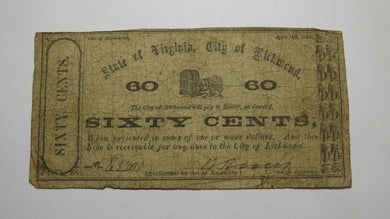 City of Richmond,
State of Virginia, City of Richmond.
60 60
The City of Richmond will pay to Bearer, on demand,
SIXTY CENTS,
When presented in sums of one or more dollars. And this
Note is receivable for any dues to the City of Richmond.
No.
(Authorized by Act of Assembly.)
SIXTY CENTS.